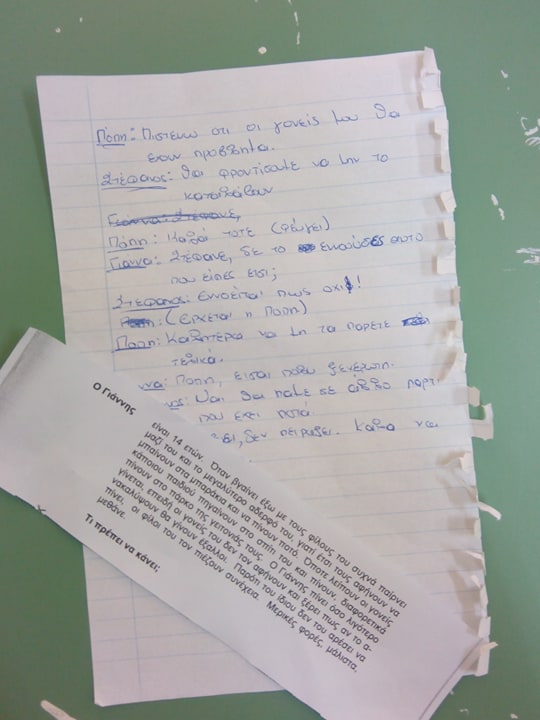 Πόπη: Πιστευω οτι οι γονείς μου θα
εχουν προβλημα.
Στέφανος: Θα φροντίσουτε να μην το
καταλάβουν
Πόπη: Καλά τότε (φεύγει)
Γιαννα: Στέφανε, δε το εννοούσες αυτο
που είπες ετσι;
Στέφανος: Εννοείται πως οχι!
(Ερχεται η Ποπη)
Ποπη: Καλητερα να μη τα παρετε
τελικα.
Ποπη, εισαι πολυ ξενερωτη.
Ναι θα παμε σε αλλο παρτι
που εχει ποτά.
δεν πειραζει. Καλα να
Ο Γιάννης
είναι 14 ετών. Όταν βγαίνει έξω με τους φίλους του συχνά παίρνει
μαζί του και το μεγαλύτερο αδερφό του, γιατί έτσι τους αφήνουν να
μπαίνουν στα μπαράκια και να πίνουν ποτό. Όποτε λείπουν οι γονείς
κάποιου παιδιού πηγαίνουν στο σπίτι του και πίνουν, διαφορετικά
πίνουν στο πάρκο της γειτονιάς τους. Ο Γιάννης πίνει όσο λιγότερο
γίνεται, επειδή οι γονείς του δεν τον αφήνουν και ξέρει πως αν το α-
νακαλύψουν θα γίνουν έξαλλοι. Παρότι του ίδιου δεν του αρέσει να
πίνει, οι φίλοι του τον πιέζουν συνέχεια. Μερικές φορές, μάλιστα,
μεθάνε.
Τι πρέπει να κάνει;